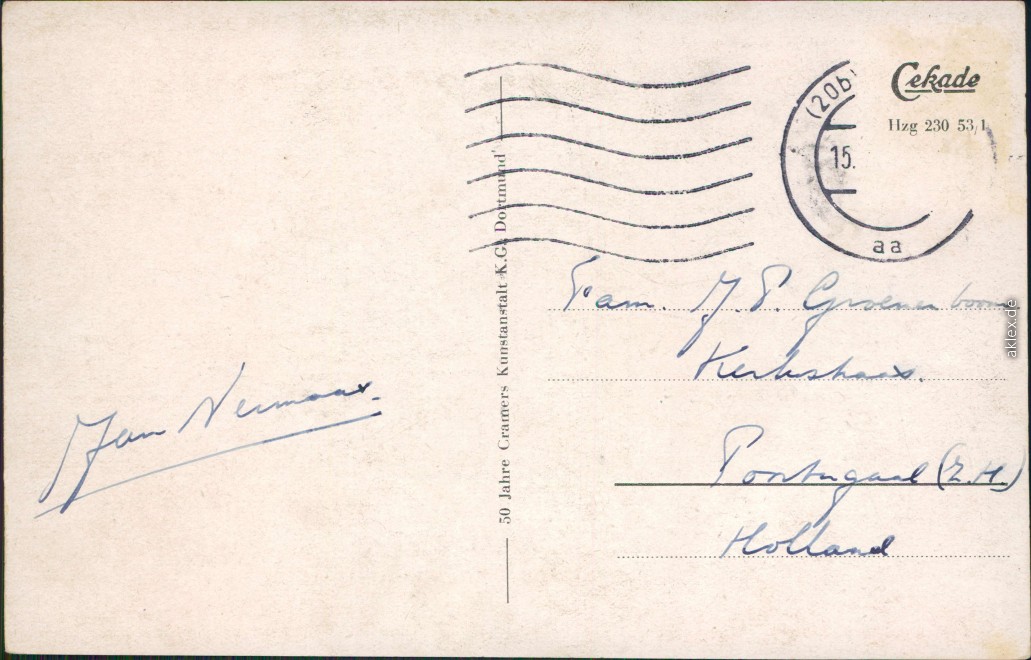 Cekade
Hzg 230 53/1
(20b)
15.
aa
50 Jahre Cramers Kunstanstalt K.G. Dortmund
Fam. J. P. Groenenboom
Portugaal (Z.H.)
Holland
Jan
aklex.de